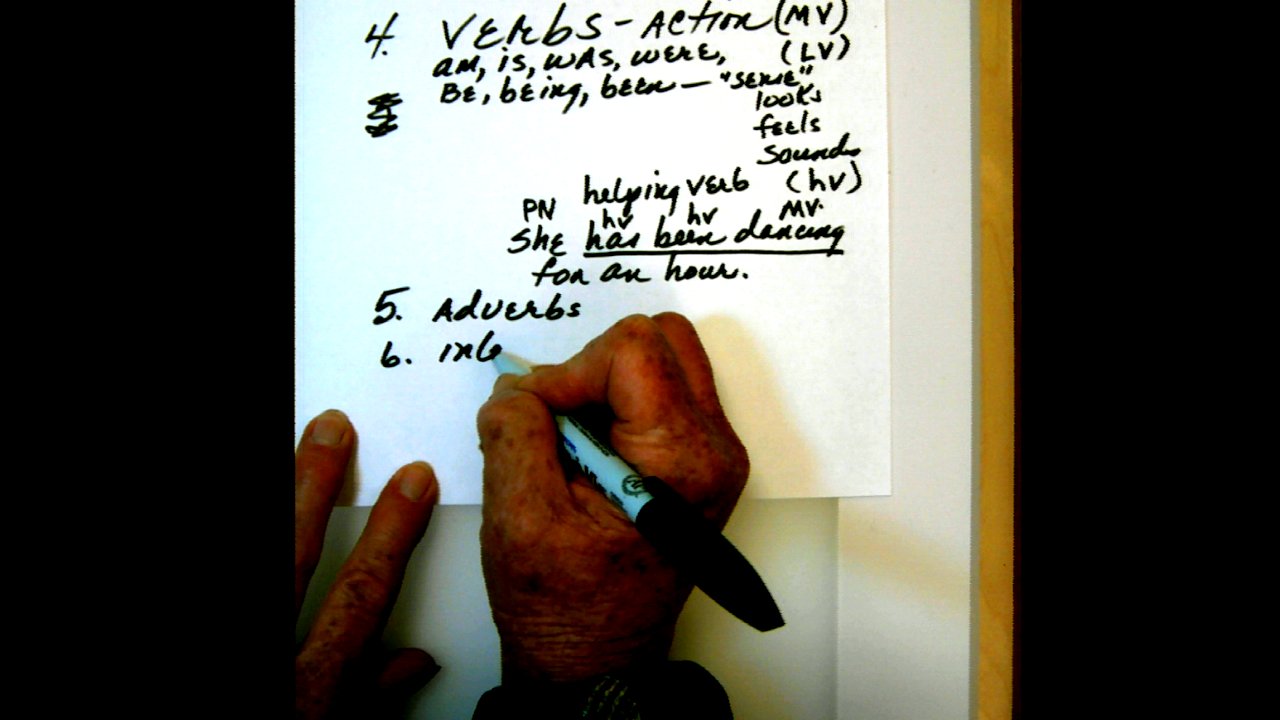 4. VERbS - Action (MV)
am, is, was, were, (LV)
BE, being, been — "sense"
looks
feels
sounds
helping verb (hv)
PN hv hv MV.
She has been dancing
for an hour.
5. Adverbs
6. int